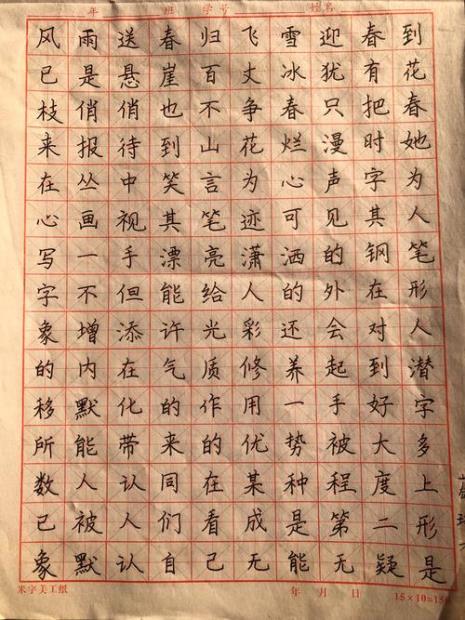 年 班 学号 姓名
风雨送春归飞雪迎春到
已是悬崖百丈冰犹有花
枝俏俏也不争春只把春
来报待到山花烂漫时她
在丛中笑言为心声字为
心画视其笔迹可见其人
写一手漂亮潇洒的钢笔
字不但能给人的外在形
象增添许光彩还会对人
的内在气质修养起到潜
移默化的作用一手好字
所能带来的优势被大多
数人认同在某种程度上
已被人们看成是第二形
象默认自己无能无疑是
米字美工纸 年 月 日 15×10=15